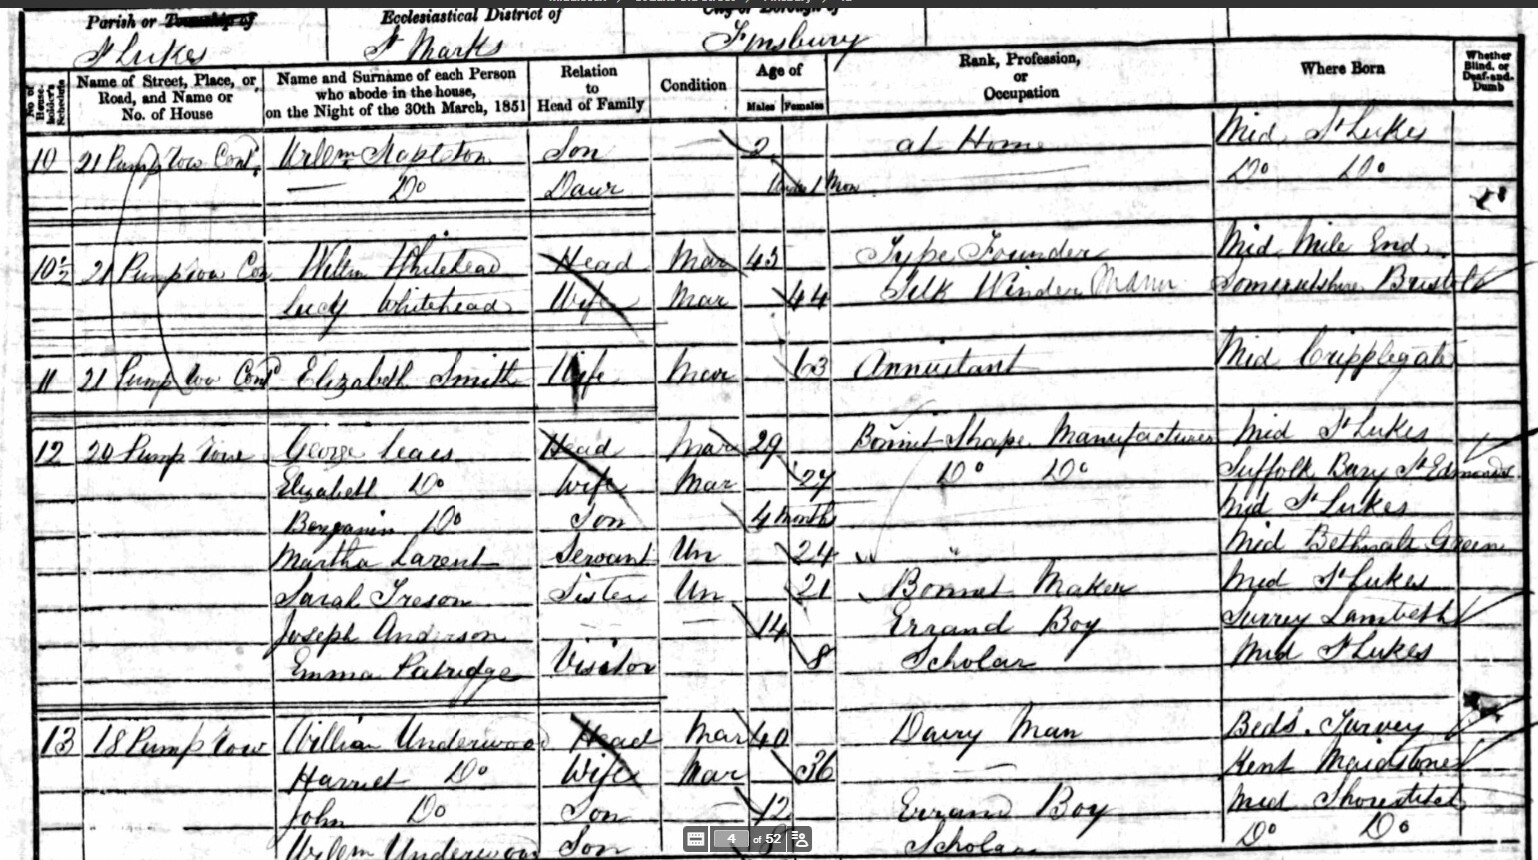 Parish or Township of Ecclesiastical District of City or Borough of
St Lukes St Marks Finsbury
No. of House-holder's Schedule Name of Street, Place, or Road, and Name or No. of House Name and Surname of each Person who abode in the house, on the Night of the 30th March, 1851 Relation to Head of Family Condition Age of Males Females Rank, Profession, or Occupation Where Born Whether Blind, or Deaf-and-Dumb
10 21 Pump Row Son 2 at Home Mid St Lukes
Do Daur Under 1 Mon Do Do
10½ 21 Pump row Willm Whitehead Head Mar 43 Type Founder Mid Mile End
Lucy Whitehead Wife Mar 44 Silk Winder Somersetshire Bristol
11 21 Pump row Elizabeth Smith Wife Mar 63 Annuitant Mid Cripplegate
12 20 Pump row George Head Mar 29 Bonnet Shape Manufacturer Mid St Lukes
Elizabeth Do Wife Mar 27 Do Do Suffolk Bury St Edmonds
Benjamin Do Son 4 Months Mid St Lukes
Martha Larent Servant Un 24 " Mid Bethnal Green
Sarah Sister Un 21 Bonnet Maker Mid St Lukes
Joseph Anderson — — 14 Errand Boy Surrey Lambeth
Emma Patridge Visitor 8 Scholar Mid St Lukes
13 18 Pump row William Underwood Head Mar 40 Dairy Man Beds. Turvey
Harriet Do Wife Mar 36 — Kent Maidstone
John Do Son 12 Errand Boy Mid Shoreditch
Underwood Son Scholar Do Do
4 of 52